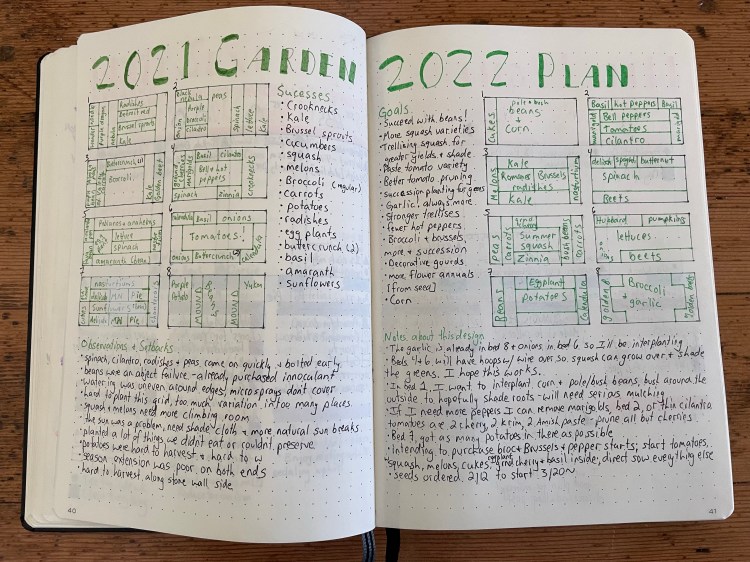 2021 GARDEN
Sucesses
• Crooknecks
• Kale
• Brussel sprouts
• cucumbers
• squash
• melons
• Broccoli (regular)
• Carrots
• potatoes
• radishes
• egg plants
• buttercrunch (2)
• basil
• amaranth
• sunflowers
Radishes
Brussel sprouts
Kale
2
peas
Purple
broccoli
cilantro
spinach
lettuce
Kale
3
Buttercrunch
Broccoli
Kale
4
Basil
cilantro
Bell + hot
peppers
Spinach
Zinnia
crooknecks
lettuce
spinach
amaranth
Calendula
Basil
onions
Tomatoes!
onions
Buttercrunch
nasturtiums
Pie
Sunflowers
Pie
8
Purple
potato
MOUND
MOUND
Yukon
Observations & Setbacks
• spinach, cilantro, radishes + peas came on quickly + bolted early
• beans were an abject failure - already purchased innoculant
• watering was uneven around edges, microsprays don't cover
• hard to plant this grid, too much variation in too many places
• squash + melons need more climbing room
• the sun was a problem, need shade cloth + more natural sun breaks
• planted a lot of things we didn't eat or couldn't preserve
• potatoes were hard to harvest + hard to w
• season extension was poor on both ends
• hard to harvest along stone wall side
40
2022 PLAN
Goals
• Succeed with beans!
• More squash varieties
• Trellising squash for
greater yields + shade
• Paste tomato variety
• Better tomato pruning
• Succession planting for greens
• Garlic! always more
• Stronger trellises
• fewer hot peppers
• Broccoli + brussels,
more + succession
• Decorative gourds
• more flower annuals
[from seed]
• Corn
cukes
pole + bush
beans
corn
2
Basil
hot peppers
Basil
marigold
Bell peppers
Tomatoes
cilantro
marigold
3
Melons
Kale
Romanesco
Brussels
radishes
Kale
nasturtium
4
delicata
spaghetti
butternut
spinach
Beets
5
Peas
carrots
Summer
squash
Zinnia
bush beans
carrots
6
Hubbard
pumpkins
lettuces
beets
7
Beans
Eggplant
potatoes
Calendula
8
golden B
Broccoli
+
garlic
golden beet
Notes about this design
• The garlic is already in bed 8 + onions in bed 6 so I'll be interplanting
• Beds 4 + 6 will have hoops w/ wire over so squash can grow over + shade
the greens. I hope this works.
• In bed 1, I want to interplant corn + pole/bush beans, but around the
outside to hopefully shade roots - will need serias mulching
• If I need more peppers I can remove marigolds, bed 2, or thin cilantro
• tomatoes are 2 cherry, 2 krim, 2 Amish paste - prune all but cherries
• Bed 7, got as many potatoes in there as possible
• intending to purchase broc + Brussels + pepper starts; start tomatoes,
squash, melons, cukes, eggplant, grnd cherry + basil inside; direct sow everything else
• seeds ordered 2/12 to start 3/20~
41